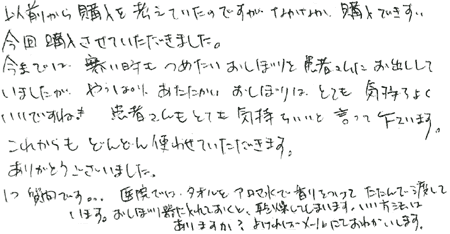 以前から購入を考えていたのですが、なかなか購入できず、
今回購入させていただきました。
今までは、寒い時もつめたいおしぼりを患者さんにお出しして
いましたが、やっぱり、あたたかいおしぼりは、とても気持ちよく
いいですねぇ 患者さんもとても気持ちいいと言って下さいます。
これからもどんどん使わせていただきます。
ありがとうございました。
1つ質問です。。。医院では、タオルをアロマ水で香りをつけてたたんで渡して
います。おしぼり器に入れておくと、乾燥してしまいます。いい方法は
ありますか?よければメールにておねがいします。